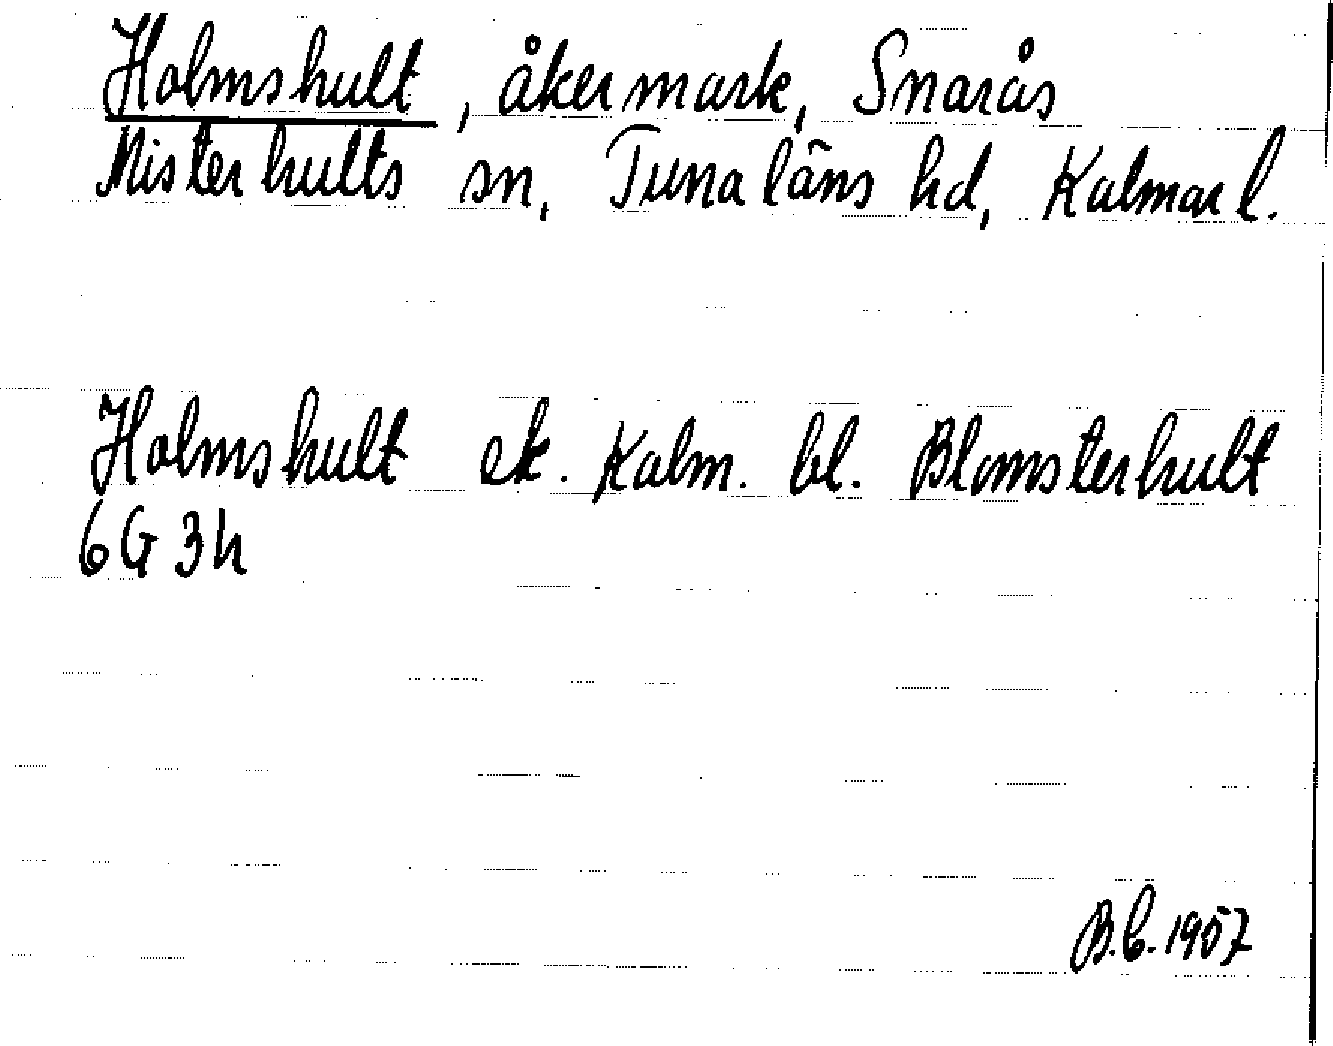 Holmshult, åkermark, Snarås
Misterhults sn, Tunaläns hd, Kalmar l.
Holmshult ek. Kalm. bl. Blomsterhult
6G 3h
B.C. 1957